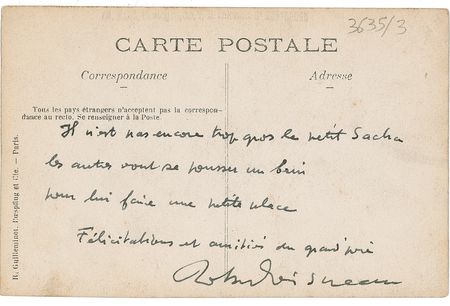 3635/3
CARTE POSTALE
Correspondance
Adresse
Tous les pays étrangers n'acceptent pas la correspon-
dance au recto. Se renseigner à la Poste.
R. Guilleminot, Bœspflug et Cie. — Paris.
Il n'est pas encore trop gros le petit Sacha
les autres vont se pousser un brin
pour lui faire une petite place
Félicitations et amitiés du grand'père